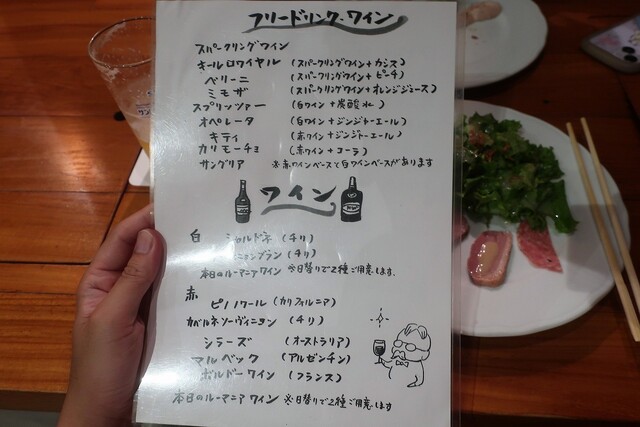 フリードリンク、ワイン
スパークリングワイン
キールロワイヤル (スパークリングワイン+カシス)
ベリーニ (スパークリングワイン+ピーチ)
ミモザ (スパークリングワイン+オレンジジュース)
スプリッツァー (白ワイン+炭酸水)
オペレータ (白ワイン+ジンジャーエール)
キティ (赤ワイン+ジンジャーエール)
カリモーチョ (赤ワイン+コーラ)
サングリア ※赤ワインベースと白ワインベースがあります
ワイン
白 シャルドネ (チリ)
ニヨンブラン (チリ)
本日のルーマニアワイン ※日替りで2種ご用意します。
赤
ピノノワール (カリフォルニア)
カベルネソーヴィニヨン (チリ)
シラーズ (オーストラリア)
マルベック (アルゼンチン)
ボルドーワイン (フランス)
本日のルーマニアワイン ※日替りで2種ご用意します